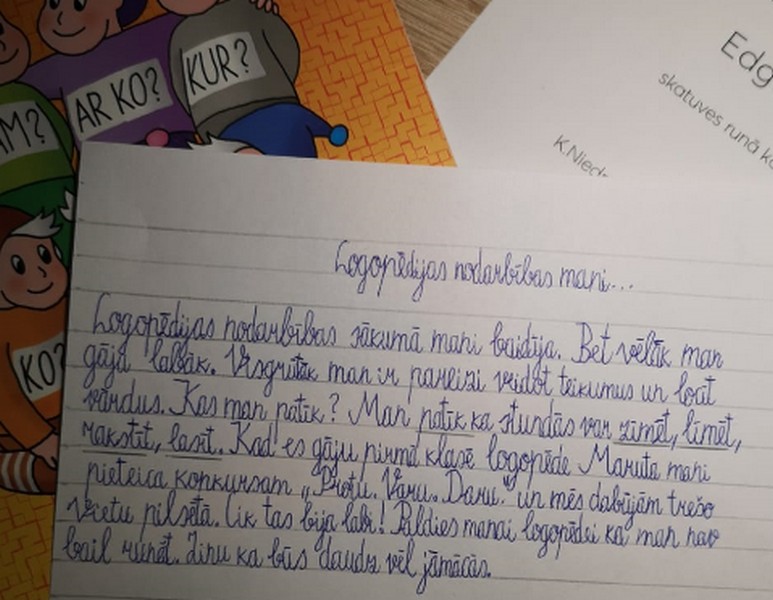 AM?
AR KO?
KUR?
KO?
Edg
skatuves runā k
K.Nied
Logopēdijas nodarbības mani...
Logopēdijas nodarbības sākumā mani baidīja. Bet vēlāk man
gāja labāk. Visgrūtāk man ir pareizi veidot teikumus un locīt
vārdus. Kas man patīk? Man patīk ka stundās var zīmēt, līmēt,
rakstīt, lasīt. Kad es gāju pirmā klasē logopēde Maruta mani
pieteica konkursam "Protu. Varu. Daru." un mēs dabūjām trešo
vietu pilsētā. Cik tas bija labi! Paldies manai logopēdei ka man nav
bail runāt. Zinu ka būs daudz vēl jāmācās.